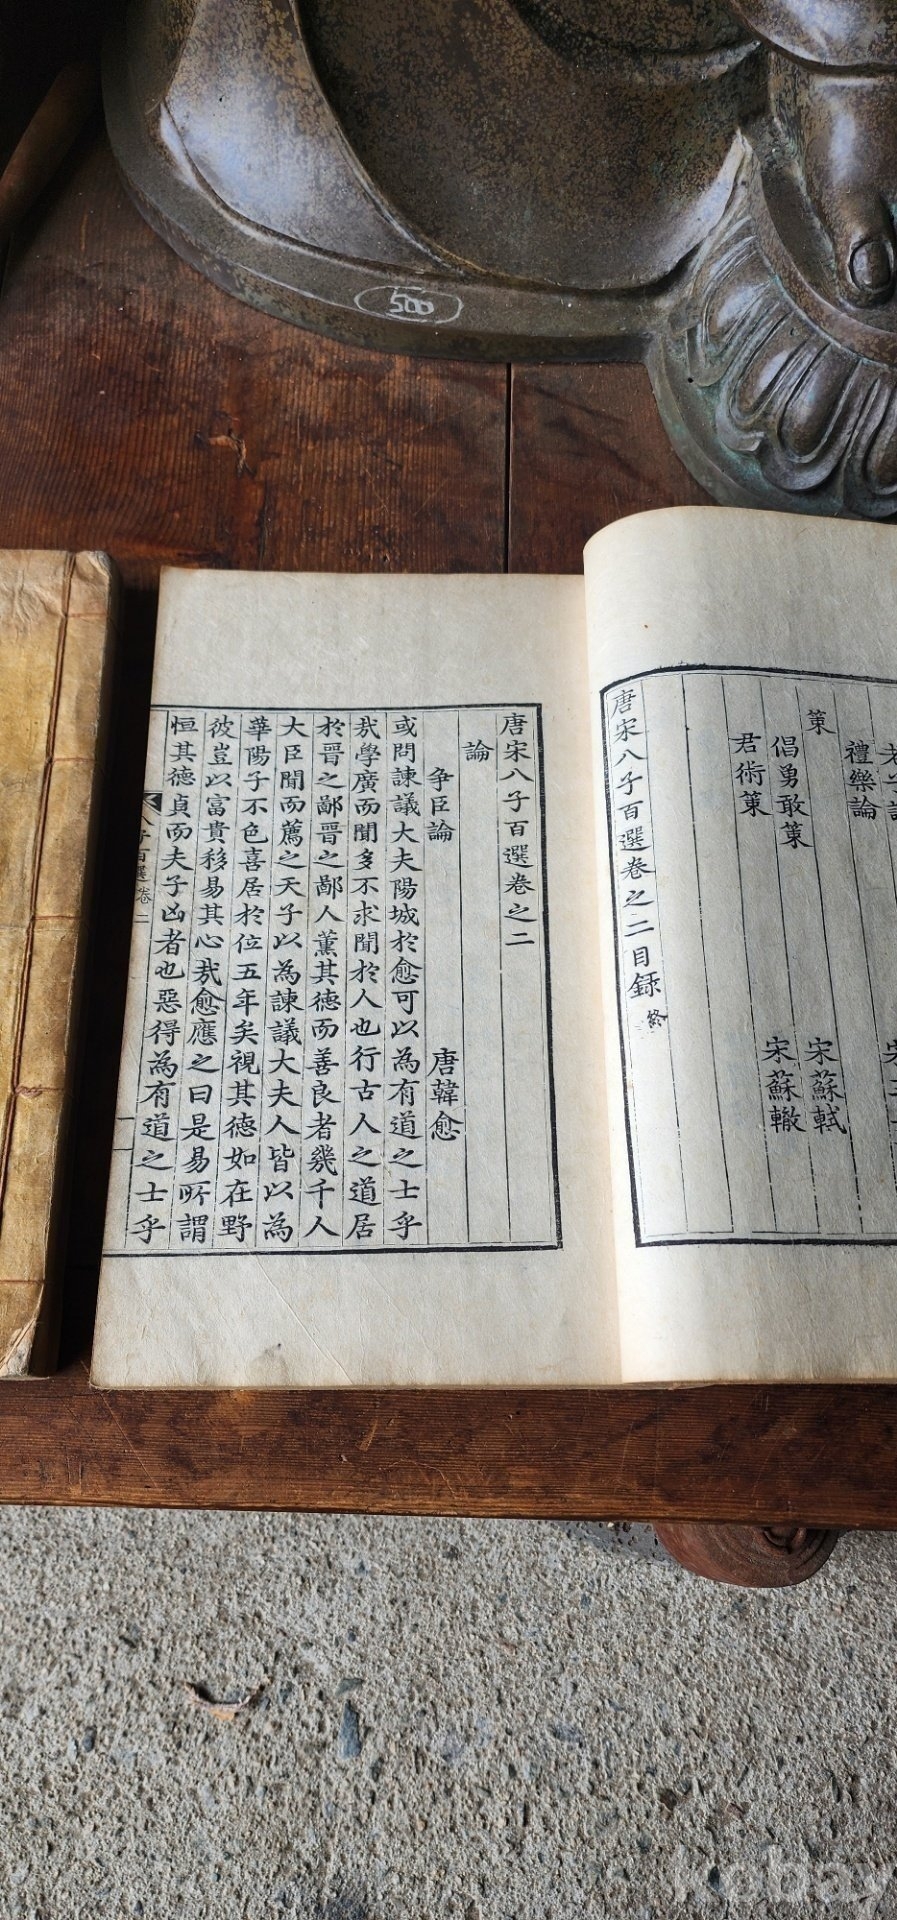 老子論
禮樂論
策
倡勇敢策 宋蘇軾
君術策 宋蘇轍
唐宋八子百選卷之二目録 終
唐宋八子百選卷之二
論
争臣論 唐韓愈
或問諫議大夫陽城於愈可以為有道之士乎
㢤學廣而聞多不求聞於人也行古人之道居
於晋之鄙晋之鄙人薰其德而善良者幾千人
大臣聞而薦之天子以為諫議大夫人皆以為
華陽子不色喜居於位五年矣視其德如在野
彼豈以富貴移易其心㢤愈應之曰是易所謂
恒其德貞而夫子凶者也惡得為有道之士乎
八子百選卷二
一
500
kobay